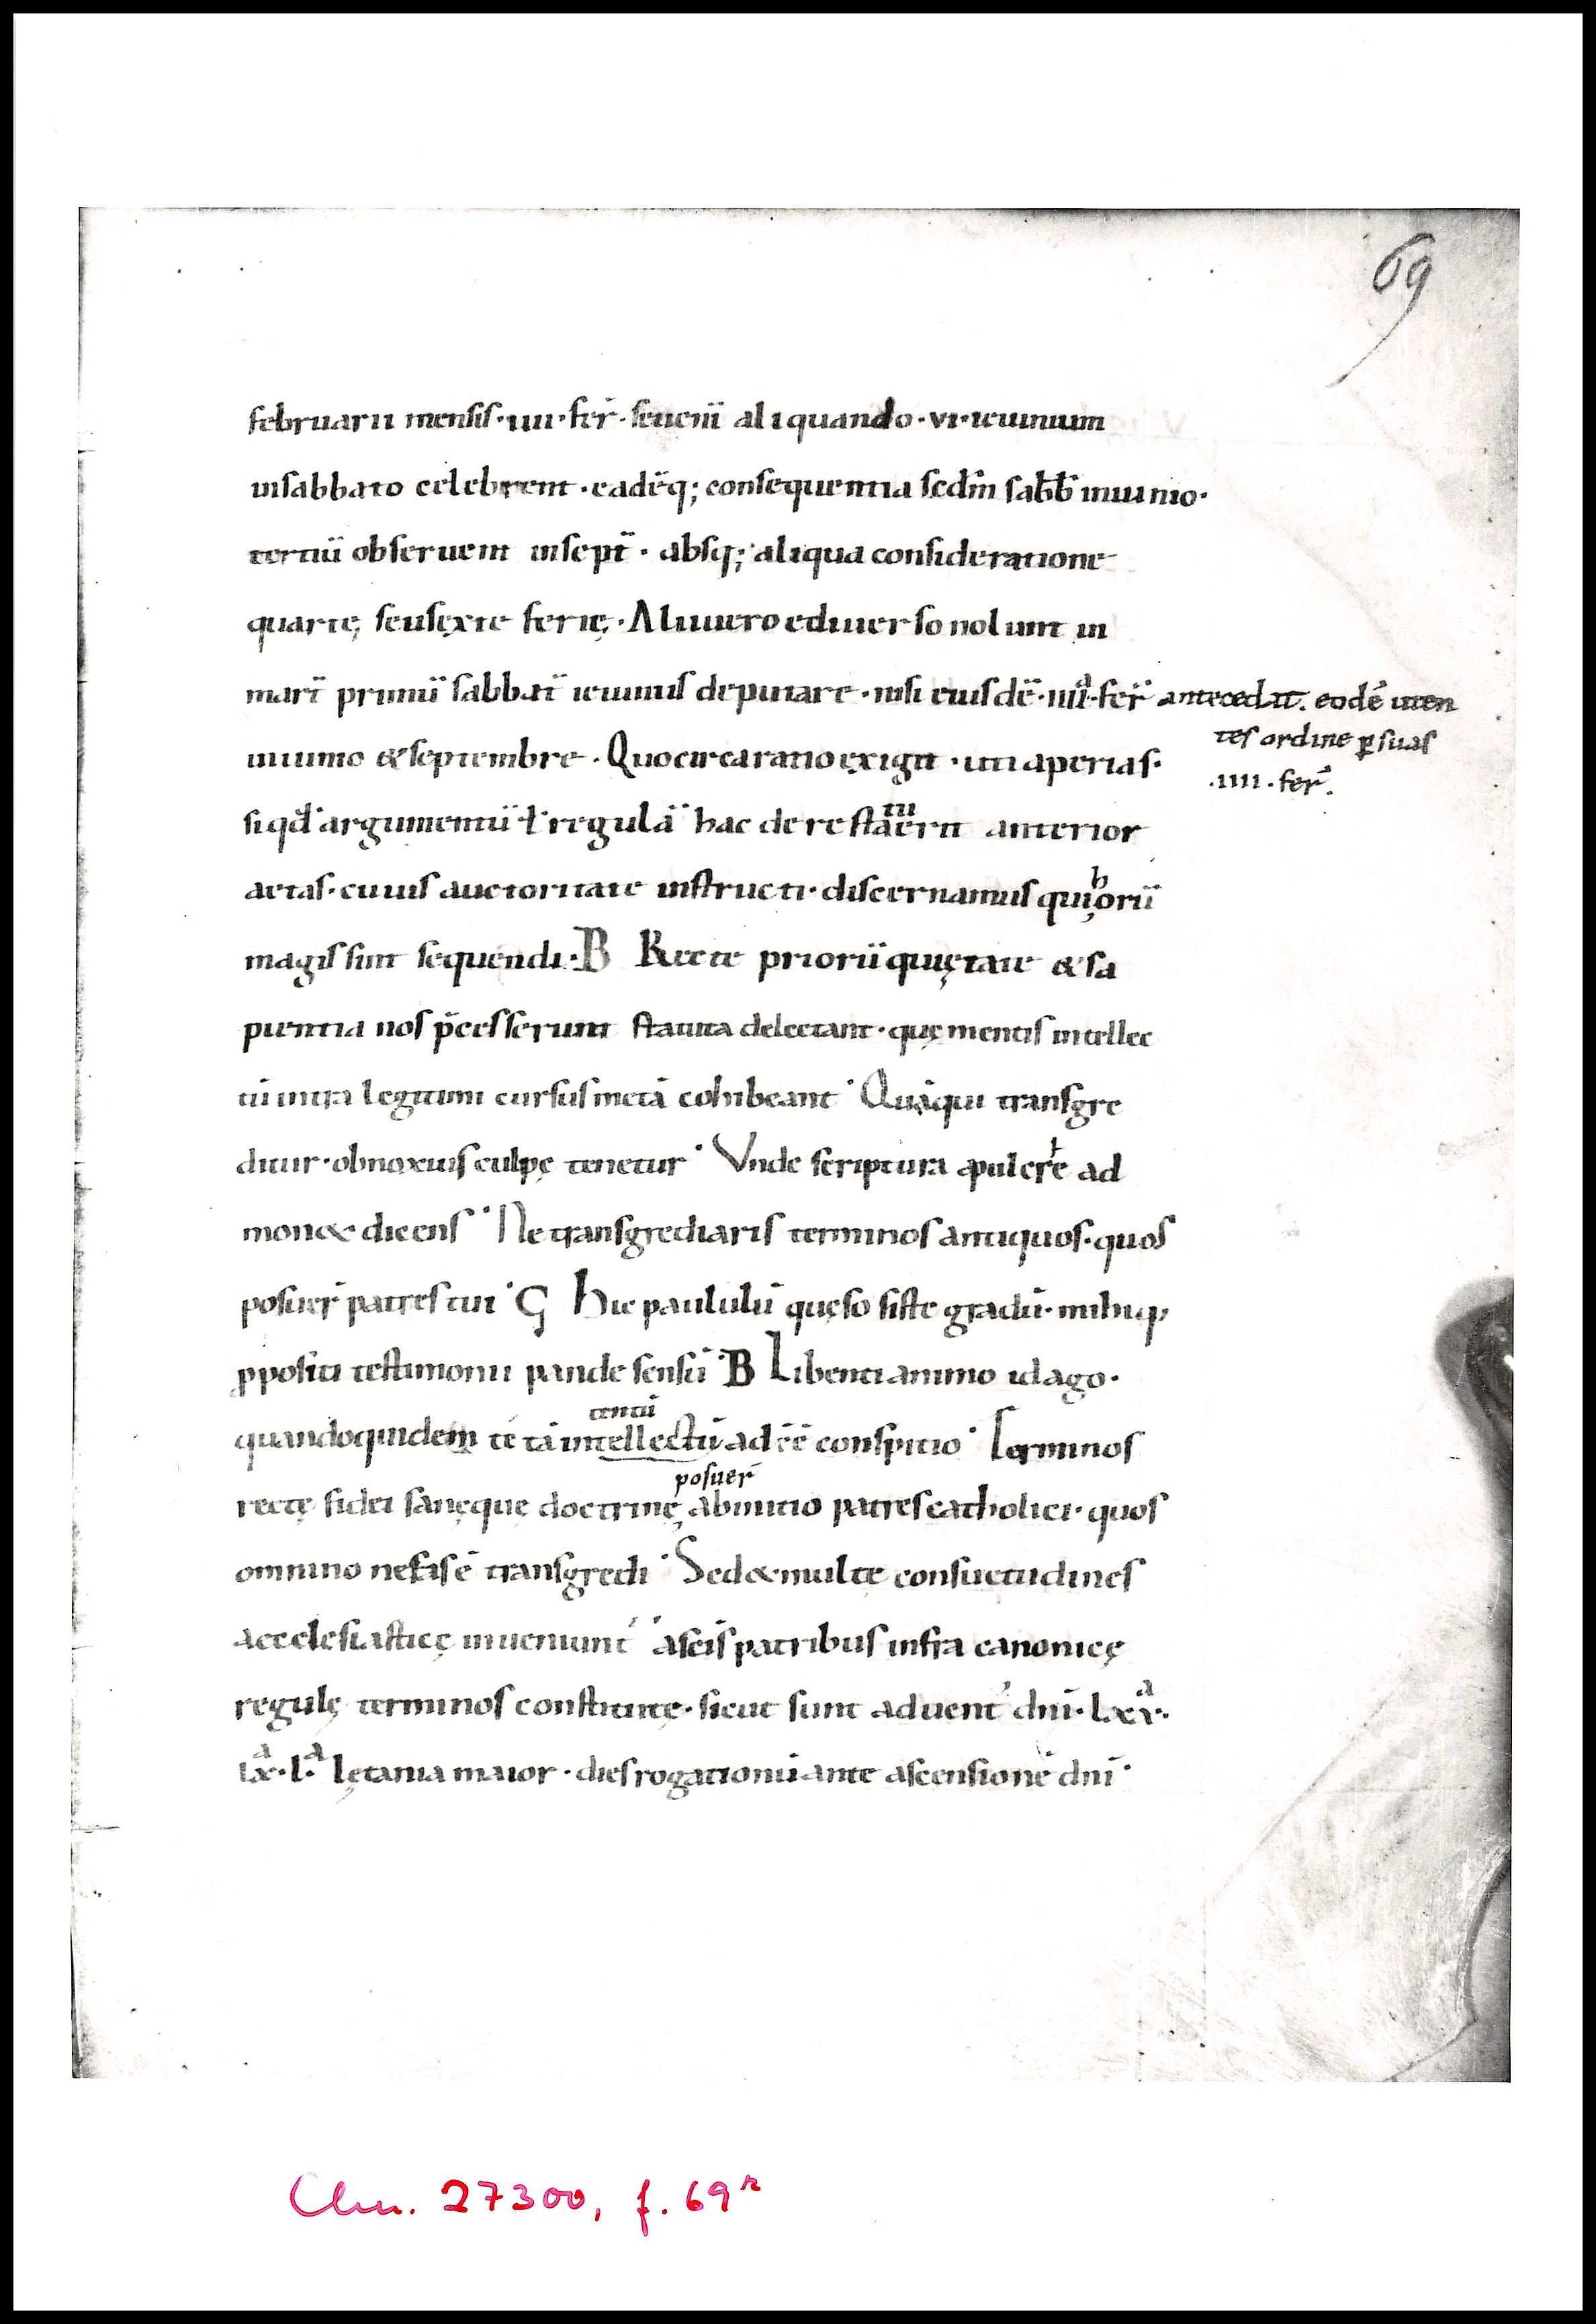 69
februarii mensis · iiii · fer̄ · seueniī aliquando · vi · ieiunium
insabbato celebrent · eadēq; consequentia scdm̄ sabb̄ iniunio ·
tertiū obseruent insept̄ · absq; aliqua consideratione
quartę seusęxte ferię · Aliiuero ediuerso nolunt in
mart̄ primū sabbat̄ ieiuniis deputare · nisi eiusdē · iiiiᵃ · fer̄ antecedat. eodē uten
tes ordine ꝑ suas
· iiii · fer̄.
iniunio & septembre · Quocircaratio exigit · uti aperias ·
siqđ argumentū ł regulā hac de re statuerit anterior
aetas · cuius auctoritate instructi · discernamus qui horū
magis sint sequendi · B Recte priorū quiętate & sa
pientia nos p̄cesserunt statuta delectant · quę mentis intellec
tū intra legitimi cursus metā cohibeant · Quā qui transgre
ditur · obnoxius culpę tenetur · Vnde scriptura ꝓulcrłe ad
mon& dicens · Ne transgrediaris terminos antiquos · quos
posuer̄ patres tui · G Hic paululū quęso siste gradū · mihiq;
ꝓpositi testimonii pande sensū · B Libenti animo id ago ·
tentū
quandoquidem te tā intellectū ad eē conspitio · Terminos
posuer̄
rectę fidei sanęque doctrinę abinitio patres catholici · quos
omnino nefas ē transgredi · Sed & multe consuetudines
aecclesiasticę inueniunt̄ a scīs patribus infra canonicę
regulę terminos constitutę · sicut sunt aduent̄ dn̄i · lxxᵃ ·
lxᵃ · lᵃ · lętania maior · dies rogationū ante ascensionē dn̄i ·
Clm. 27300, f. 69ʳ